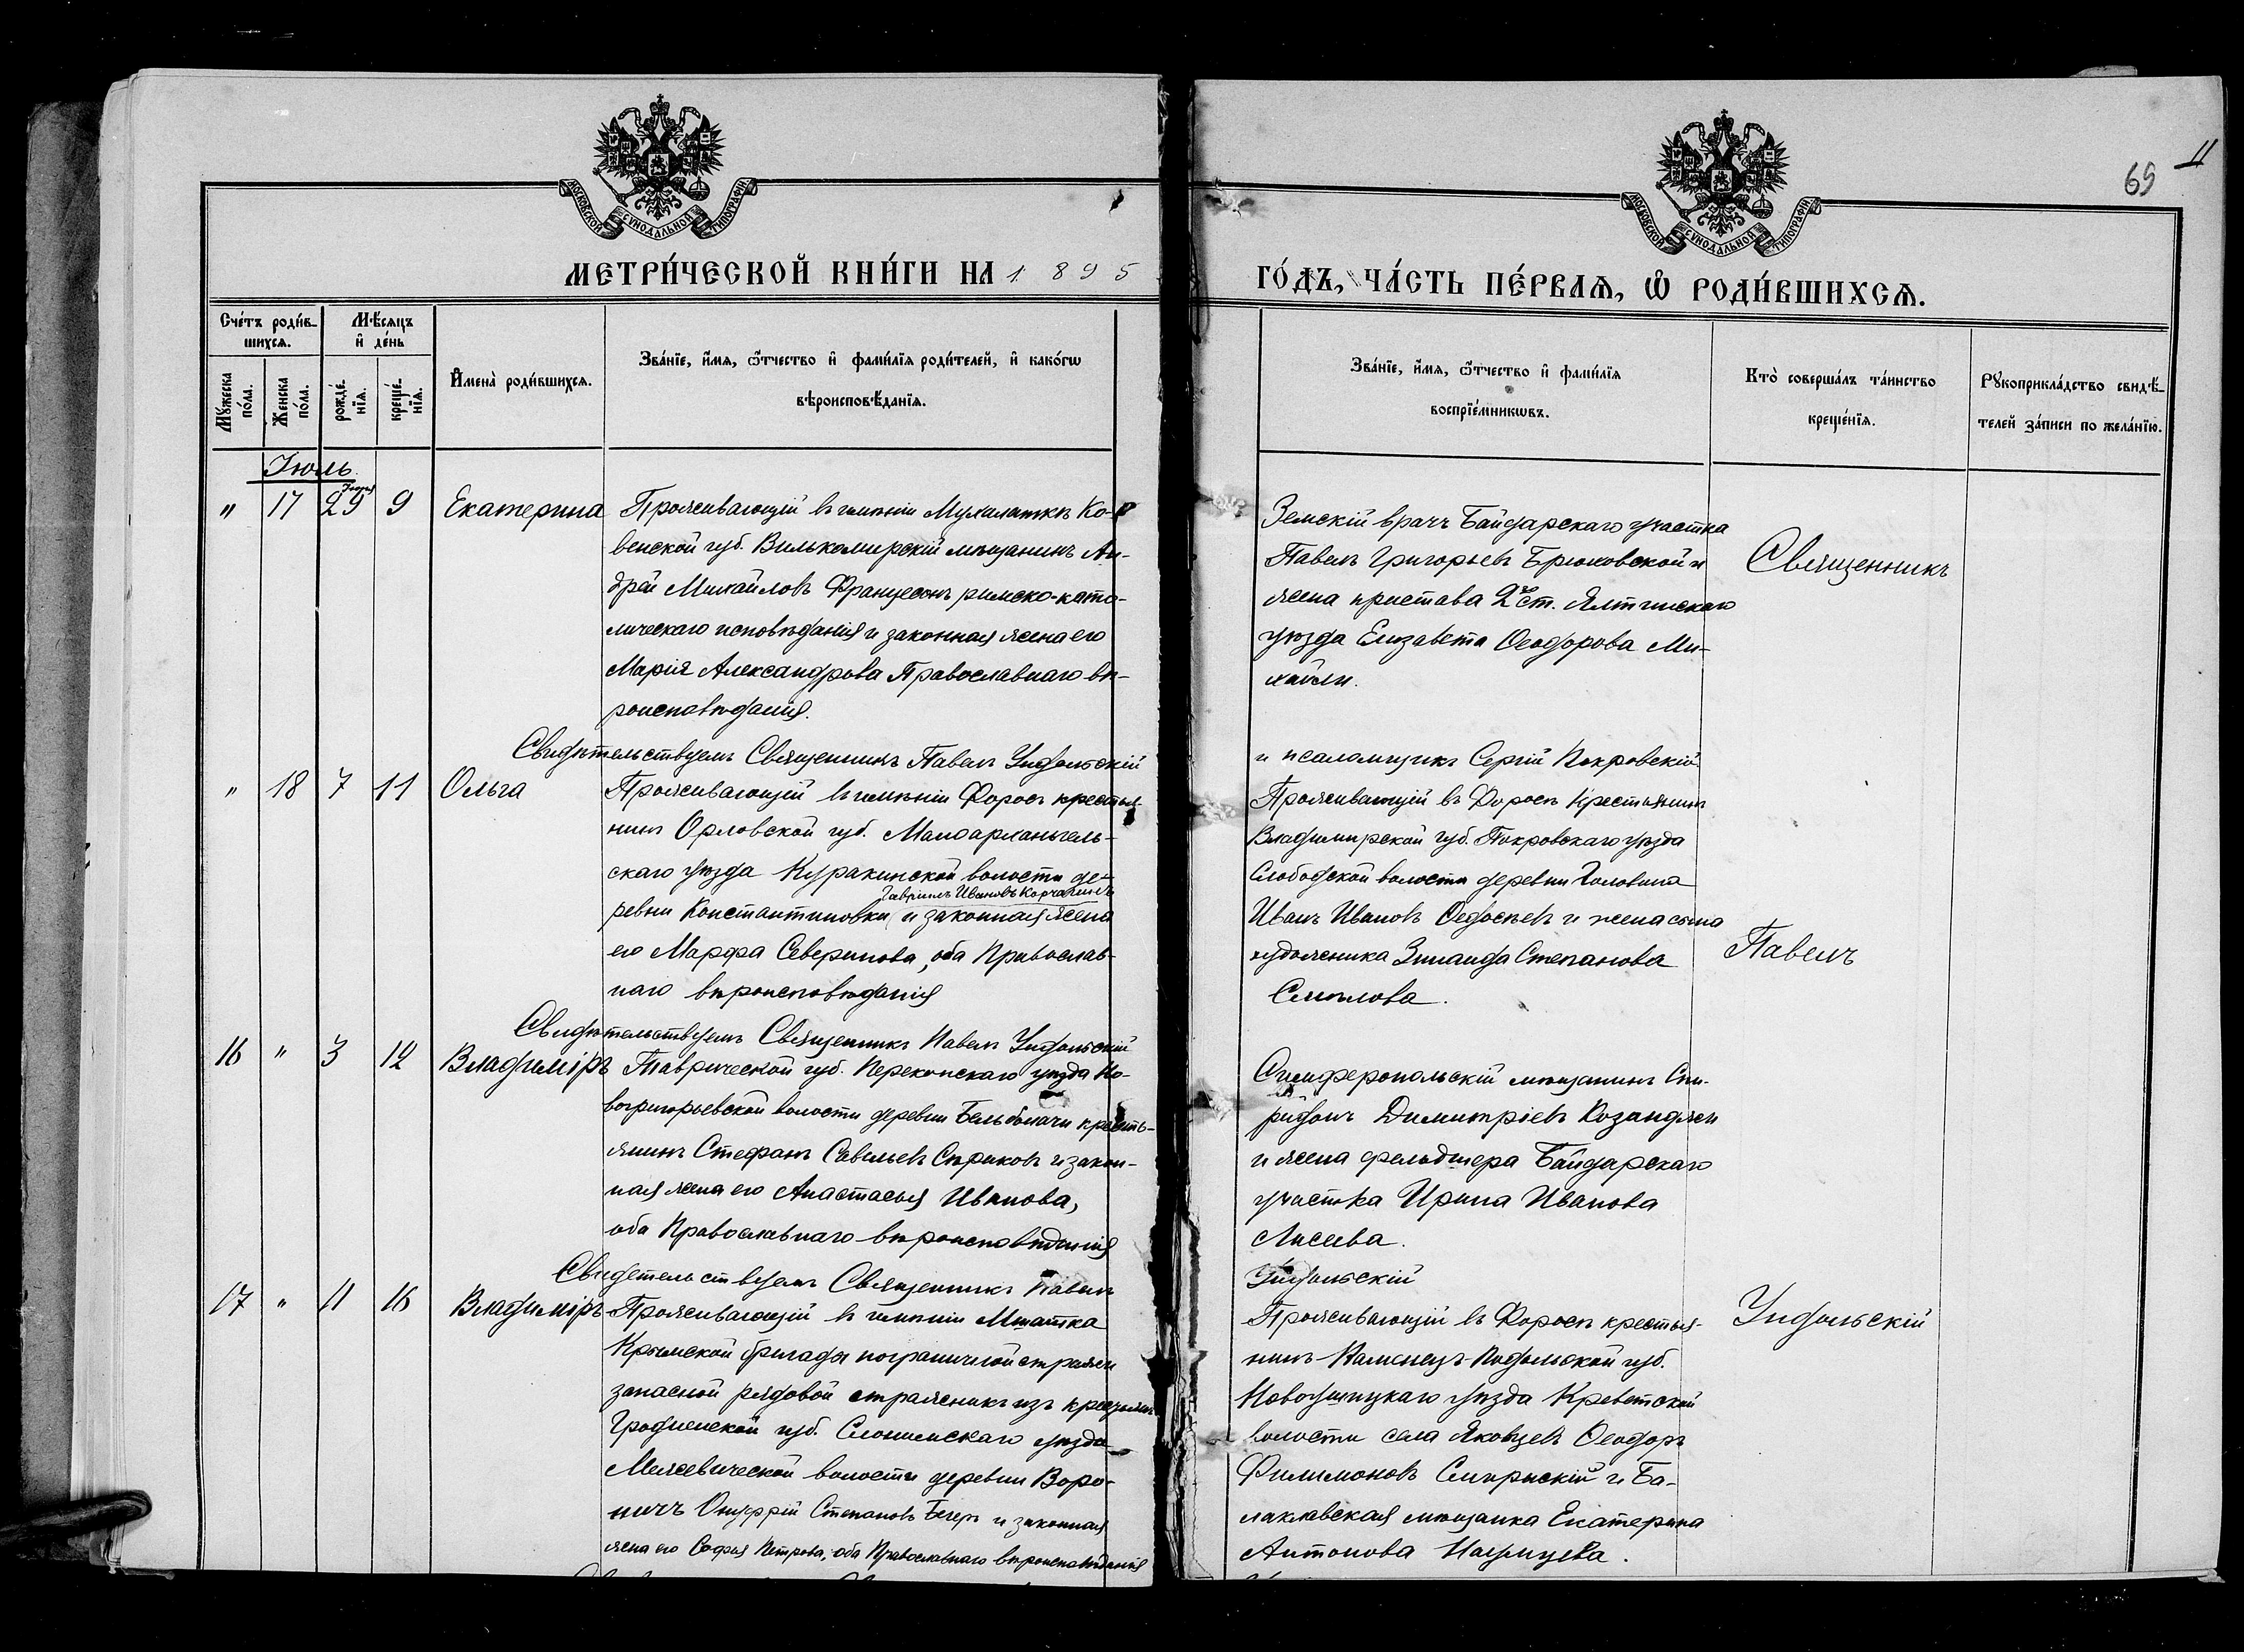 69
11
МОСКОВСКОЙ СУНОДАЛЬНОЙ ТИПОГРАФІИ
МОСКОВСКОЙ СУНОДАЛЬНОЙ ТИПОГРАФІИ
МЕТРИ́ЧЕСКОЙ КНИ́ГИ НА 1895
ГО́ДЪ, ЧА́СТЬ ПЕ́РВАѦ, Ѡ РОДИ́ВШИХСѦ.
Сче́тъ роди́в-
шихсѧ.
Мѣ́сѧцъ
и҆ де́нь
Мꙋжеска по́ла.
Же́нска по́ла.
рожде́-
нїѧ.
креще́-
нїѧ.
И҆мена̀ роди́вшихсѧ.
Зва́нїе, и҆́мѧ, ѻ҆́тчество и҆ фами́лїѧ роди́телей, и҆ како́гѡ
вѣроисповѣ́данїѧ.
Зва́нїе, и҆́мѧ, ѻ҆́тчество и҆ фами́лїѧ
воспрїе́мникѡвъ.
Кто̀ соверша́лъ та́инство
креще́нїѧ.
Рꙋкоприкла́дство свидѣ́-
телей за́писи по жела́нїю.
Іюль
" 17 29 Іюня 9 Екатерина
Проживающій въ имѣніи Мухалаткѣ Ко-
венской губ. Вилькомирскій мѣщанинъ Ан-
дрей Михайловъ Францесонъ римско-като-
лическаго исповѣданія и законная жена его
Марія Александрова Православнаго вѣ-
роисповѣданія.
Земскій врачъ Байдарскаго участка
Павелъ Григорьевъ Брюховской и
жена пристава 2 ст. Ялтинскаго
уѣзда Елизавета Ѳеодорова Ми-
хайли.
Священникъ
Свидѣтельствуемъ Священникъ Павелъ Ундольскій
и псаломщикъ Сергій Покровскій.
" 18 7 11 Ольга
Проживающій въ имѣніи Форосъ крестья-
нинъ Орловской губ. Малоархангель-
скаго уѣзда Куракинской волости де-
Гавріилъ Ивановъ Корчагинъ
ревни Константиновки и законная жена
его Марфа Северинова, оба Православ-
наго вѣроисповѣданія
Проживающій въ Форосѣ Крестьянинъ
Владимирской губ. Покровскаго уѣзда
Слободской волости деревни Головина
Иванъ Ивановъ Ѳедосѣевъ и жена сына
художника Зинаида Степанова
Смѣлова.
Павелъ
Свидѣтельствуемъ Священникъ Павелъ Ундольскій
16 " 3 12 Владиміръ
Таврической губ. Перекопскаго уѣзда Но-
вогригорьевской волости деревни крестья-
янинъ Стефанъ Савельевъ Сѣриковъ и закон-
ная жена его Анастасья Иванова,
оба Православнаго вѣроисповѣданія
Симферопольскій мѣщанинъ Спи-
ридонъ Димитріевъ Козанджи
и жена фельдшера Байдарскаго
участка Ирина Иванова
Лисева.
Свидетельствуемъ Священникъ Павелъ
Ундольскій
17 " 11 16 Владиміръ
Проживающій въ имѣніи Мшатка
Крымской бригады пограничной стражи
запасной рядовой стражникъ изъ крестьянъ
Гродненской губ. Слонимскаго уѣзда
волости деревни Воро-
ничъ Онуфрій Степановъ Бегеръ и законная
жена его Софія Петрова, оба Православнаго вѣроисповѣданія
Проживающій въ Форосѣ крестья-
нинъ Каменецъ-Подольской губ.
Новоушицкаго уѣзда
волости села Яковцевъ Ѳеодоръ
Филимоновъ Смирнскій и Ба-
лаклавская мѣщанка Екатерина
Антонова
Ундольскій